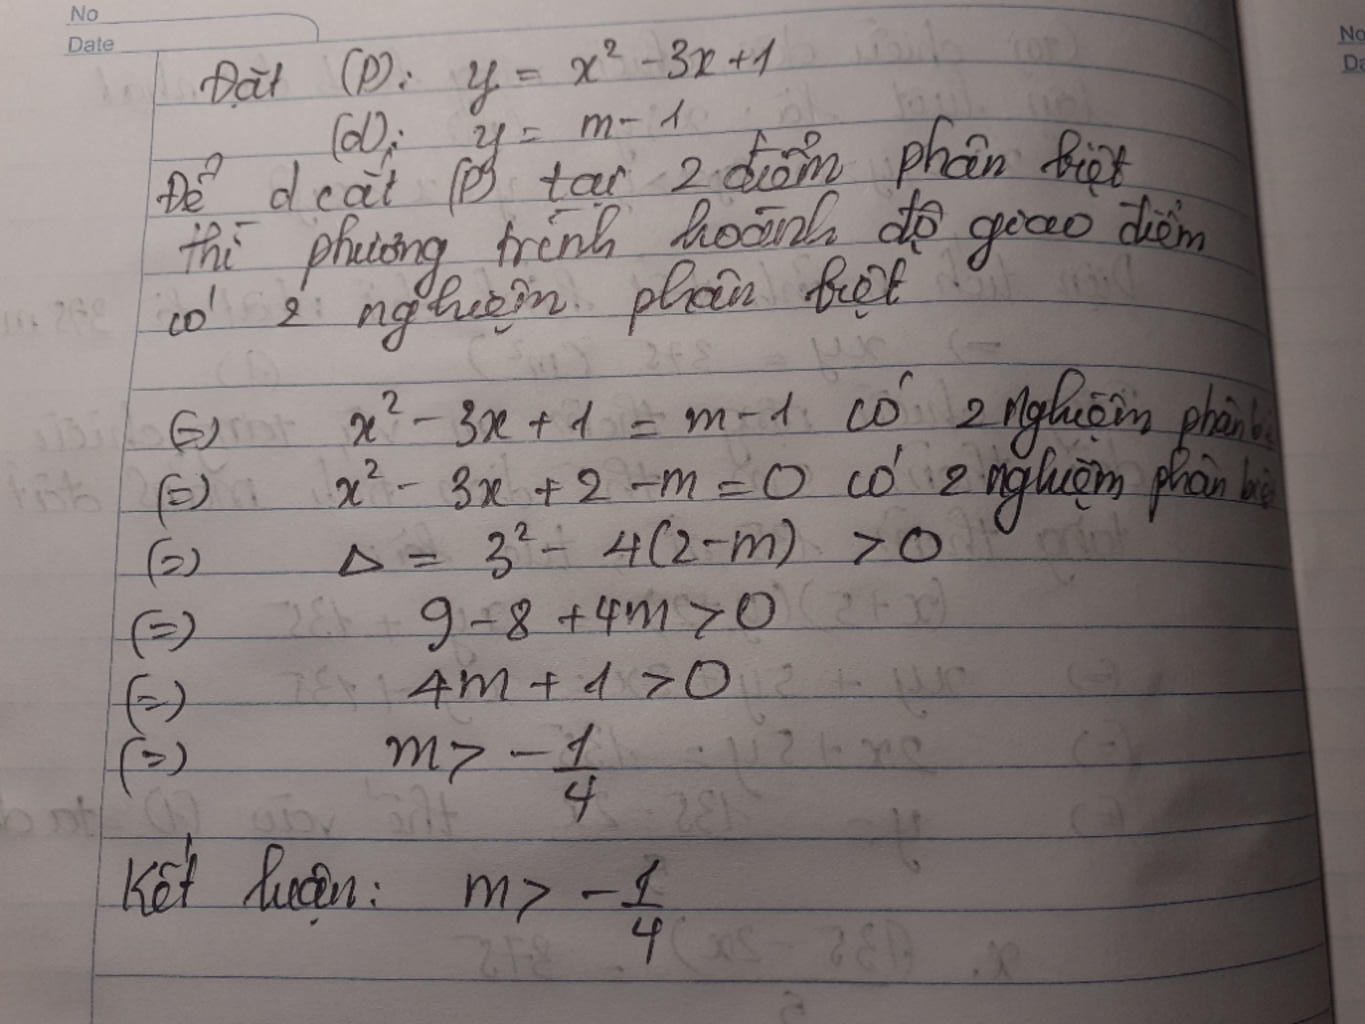 No
Date
Đặt (P): y = x² - 3x + 1
(d): y = m - 1
Để d cắt (P) tại 2 điểm phân biệt
thì phương trình hoành độ giao điểm
có 2 nghiệm phân biệt
(=) x² - 3x + 1 = m - 1 có 2 nghiệm phân
(=) x² - 3x + 2 - m = 0 có 2 nghiệm phân
(=) Δ = 3² - 4(2 - m) > 0
(=) 9 - 8 + 4m > 0
(=) 4m + 1 > 0
(=) m > -1/4
Kết luận: m > -1/4
No